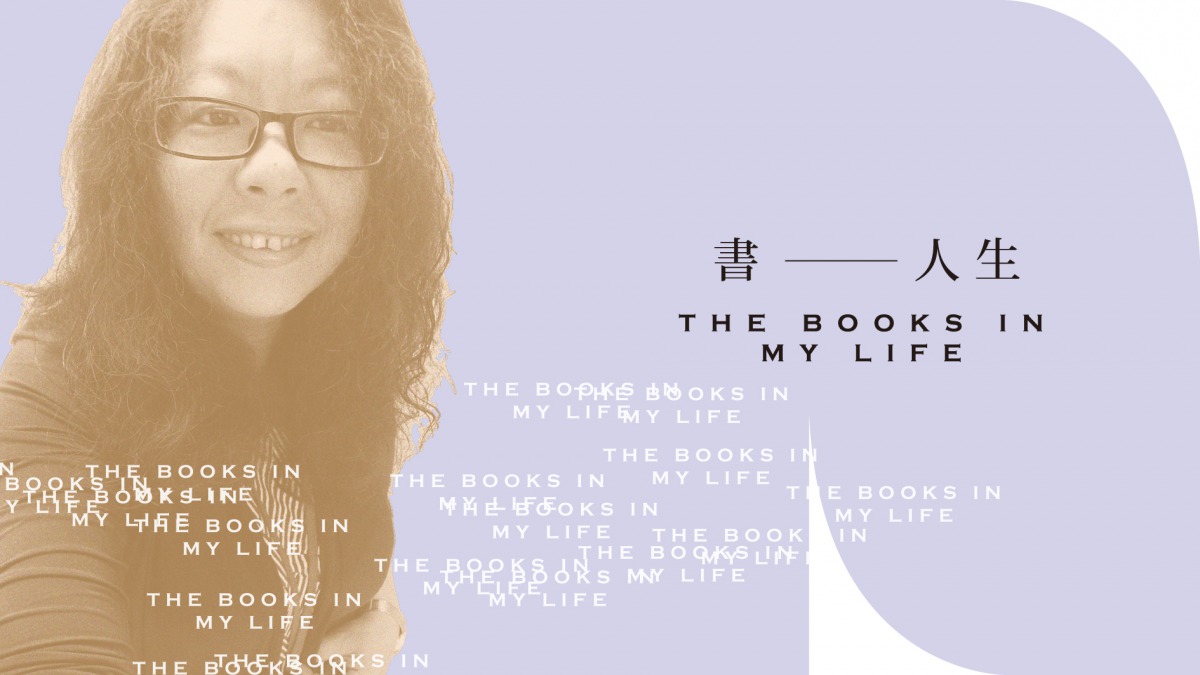 書 —— 人生
THE BOOKS IN
MY LIFE
THE BOOKS IN
MY LIFE
THE BOOKS IN
MY LIFE
THE BOOKS IN
MY LIFE
N
THE BOOKS IN
MY LIFE
BOOKS IN
Y LIFE
THE BOOKS IN
MY LIFE
THE BOOKS IN
MY LIFE
THE BOOKS IN
MY LIFE
THE BOOKS IN
MY LIFE
THE BOOKS IN
MY LIFE
THE BOOKS IN
MY LIFE
THE BOOKS IN
MY LIFE
THE BOOKS IN
MY LIFE
THE BOOKS IN
MY LIFE
THE BOOKS IN
MY LIFE
THE BOOKS IN
MY LIFE
THE BOOKS IN
THE BOOKS IN